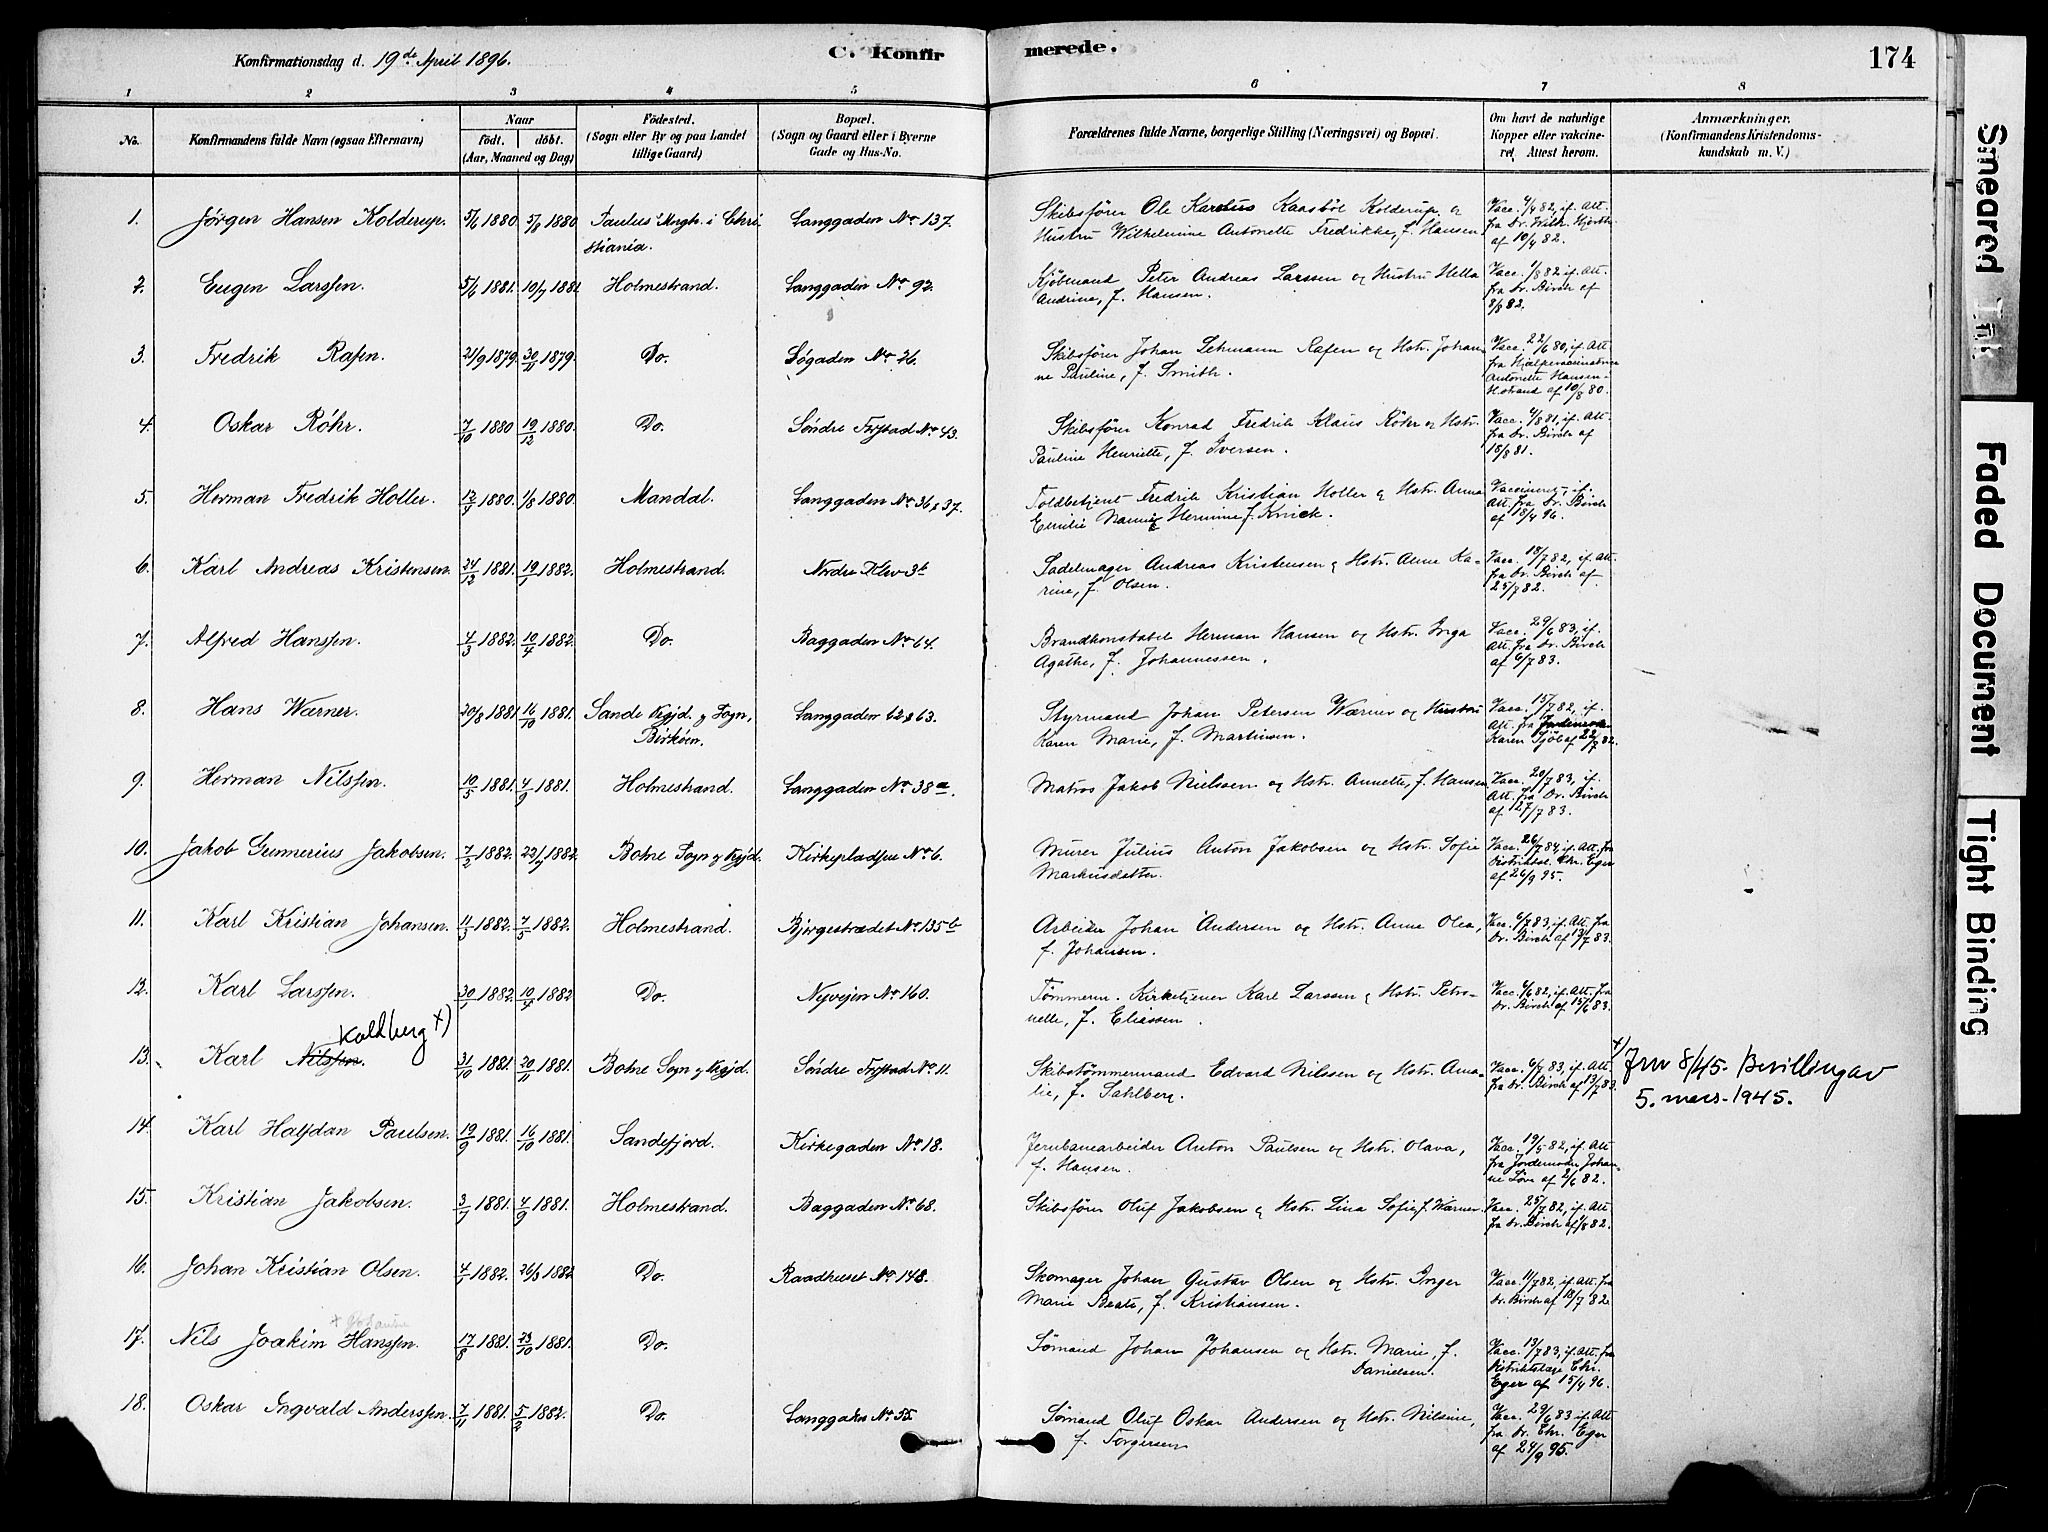 Konfirmationsdag d. 19de April 1896.
C. Konfirmerede.
174
1 2 3 4 5 6 7 8
No.
Konfirmandens fulde Navn (ogsaa Efternavn)
Naar
födt. döbt.
(Aar, Maaned og Dag)
Födested.
(Sogn eller By og paa Landet
tillige Gaard)
Bopæl.
(Sogn og Gaard eller i Byerne
Gade og Hus-No.
Forældrenes fulde Navne, borgerlige Stilling (Næringsvei) og Bopæl.
Om havt de naturlige
Kopper eller vakcine-
ret. Attest herom.
Anmærkninger.
(Konfirmandens Kristendoms-
kundskab m. V.)
1. Jørgen Hansen Kolderup. 5/6 1880 5/9 1880 Paulus Mrgh. i Chri- Langgaden No 137. Skibsfører Ole Karelius Kaasbøl Kolderup og Vacc. 4/4 82, if. Att.
stiania. Hustru Wilhelmine Antonette Fredrikke, f. Hansen fra Dr. Wilh. Hjorth
af 10/4 82.
2. Eugen Larssen. 5/6 1881. 10/7 1881 Holmestrand. Langgaden No 92. Kjøbmand Peter Andreas Larssen og Hustru Hella Vacc. 1/8 82 if. Att.
Andrine, f. Hansen. fra Dr. Birch af
8/8 82.
3. Fredrik Rafen. 21/9 1879. 30/11 1879. Do. Søgaden No 26. Skibsfører Johan Lehmann Rafen og Hstr. Johan- Vacc. 22/6 80, if. Att
ne Pauline, f. Smith. fra Hjælpevaccinatrice
Antonette Hansen
H.strand af 10/8 80.
4. Oskar Röhr. 7/10 1880 19/12 1880. Do. Søndre Frystad No 43. Skibsfører Konrad Fredrik Klaus Röhr og Hstr. Vacc. 4/8 81, if. Att.
Pauline Henriette, f. Iversen. fra Dr. Birch af
18/8 81.
5. Herman Fredrik Holler. 12/4 1880. 1/8 1880. Mandal. Langgaden No 36 & 37. Toldbetjent Fredrik Kristian Holler og Hstr. Anna Vaccineret, if.
Emilie Nanni Hermine f. Knick. Att. fra Dr. Birch
af 18/4 96.
6. Karl Andreas Kristensen. 24/12 1881. 19/1 1882. Holmestrand. Nordre Klev 3b Sadelmager Andreas Kristensen og Hstr. Anne Ka- Vacc. 18/7 82, if. Att.
rine, f. Olsen. fra Dr. Birch af
25/7 82.
7. Alfred Hanssen. 4/3 1882. 10/4 1882. Do. Baggaden No 64. Brandkonstabel Herman Hansen og Hstr. Inga Vacc. 29/6 83, if.
Agathe, f. Johannessen. Att. fra Dr. Birch
af 6/7 83.
8. Hans Wærner. 20/8 1881 16/10 1881. Sande Kgjd. og Sogn, Langgaden 62 & 63. Styrmand Johan Petersen Wærner og Hustru Vacc. 15/7 82, if.
Birköen. Karen Marie, f. Martinsen. Att. fra Jordemor
Karen Sjöl af 22/7 82.
9. Herman Nilssen. 10/5 1881. 4/9 1881. Holmestrand. Langgaden No 38a. Matros Jakob Nielssen og Hstr. Annette, f. Hansen Vacc. 20/7 83, if.
Att. fra Dr. Birch
af 27/7 83.
10. Jakob Gunnerius Jakobsen. 7/2 1882. 23/7 1882. Botne Sogn og Kgjd. Kirkepladsen No 6. Murer Julius Anton Jakobsen og Hstr. Sofie Vacc. 26/7 84, if. Att. fra
Markusdatter. Distriktsl. Chr. Eger
af 26/9 95.
11. Karl Kristian Johansen. 11/3 1882. 7/5 1882. Holmestrand. Bjørgestrædet No 135b Arbeider Johan Andersen og Hstr. Anne Olea, Vacc. 6/7 83, if. Att. fra
f. Johansen. Dr. Birch af 13/7 83.
12. Karl Larssen. 30/1 1882. 10/4 1882 Do. Nyveien No 160. Tømmerm. Kirketjener Karl Larssen og Hstr. Petro- Vacc. 4/6 82, if. Att. fra
nelle, f. Eliassen. Dr. Birch af 15/6 83.
Kaldberg x)
13. Karl Nilssen. 31/10 1881. 20/11 1881. Botne Sogn og Kgjd. Søndre Frystad No 11. Skibstømmermand Edvard Nilssen og Hstr. Ama- Vacc. 6/7 83, if. Att. x) Jrn 8/45. Bevilling av
lie, f. Sahlberg. fra Dr. Birch af 13/7 83. 5. mars. 1945.
14. Karl Halfdan Paulsen. 19/9 1881. 16/10 1881. Sandefjord. Kirkegaden No 18. Jernbanearbeider Anton Paulsen og Hstr. Olava, Vacc. 19/5 82, if. Att
f. Hansen. fra Jordemoder Johan-
ne Löve af 2/6 82.
15. Kristian Jakobsen. 3/7 1881. 4/9 1881. Holmestrand. Baggaden No 68. Skibsfører Oluf Jakobsen og Hstr. Lina Sofie f. Wærner. Vacc. 25/7 82, if. Att.
fra Dr. Birch af 1/8 82.
16. Johan Kristian Olsen. 4/1 1882. 26/3 1882 Do. Raadhuset No 148. Skomager Johan Gustav Olsen og Hstr. Inger Vacc. 11/7 82, if. Att. fra
Marie Beate, f. Kristiansen. Dr. Birch af 18/7 82
x Johansen
17. Nils Joakim Hanssen. 17/8 1881. 23/10 1881. Do. Sømand Johan Johansen og Hstr. Marie, f. Vacc. 13/7 83, if. Att. fra
Danielsen. Distriktslæge Chr.
Eger af 15/4 96.
18. Oskar Ingvald Anderssen. 7/11 1881. 5/2 1882. Do. Langgaden No 55. Sømand Oluf Oskar Andersen og Hstr. Nilsine, Vacc. 29/6 83 if. Att
f. Torgersen fra Dr. Chr. Eger
af 24/9 95.
Smeared Ink
Faded Document
Tight Binding